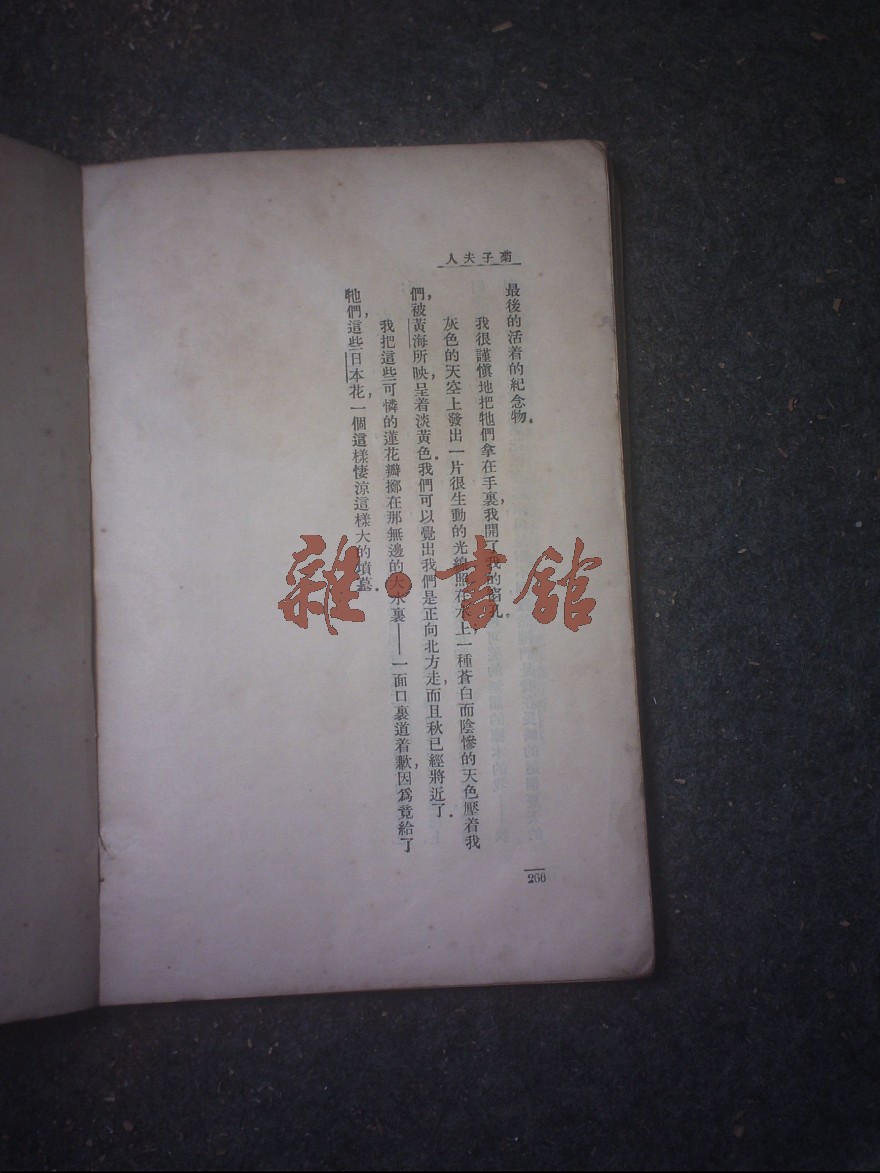 菊子夫人
最後的活着的紀念物。
我很謹愼地把牠們拿在手裏,我開了我的窗孔。
灰色的天空上發出一片很生動的光線照在水上;一種蒼白而陰慘的天色壓着我
們,被黃海所映,呈着淡黃色。我們可以覺出我們是正向北方走,而且秋已經將近了。
我把這些可憐的蓮花瓣擲在那無邊的大水裏——一面口裏道着歉,因爲竟給了
牠們,這些日本花,一個這樣悽涼這樣大的墳墓。
260
雜·書館